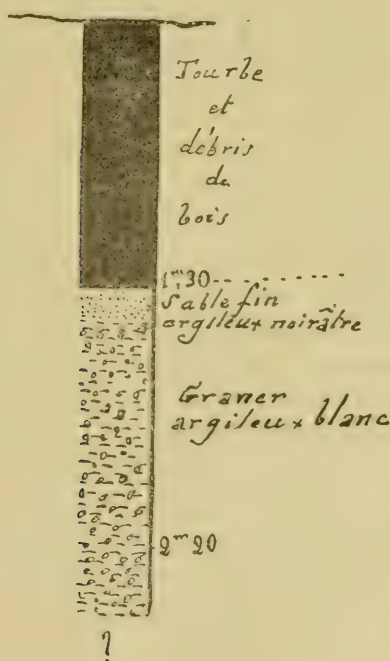 Tourbe
et
débris
de
bois
1ᵐ,30
Sable fin
argileux noirâtre
Gravier
argileux blanc
2ᵐ20
?